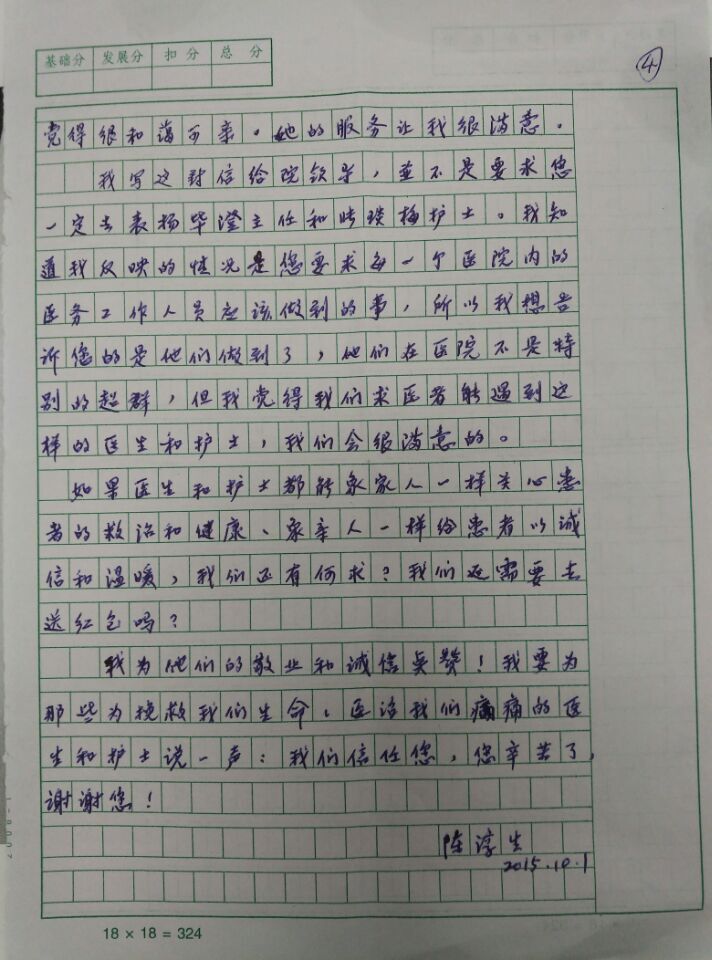 基础分 发展分 扣分 总分
④
觉得很和蔼可亲。她的服务让我很满意。
我写这封信给院领导，并不是要求您
一定去表扬毕澄主任和时琰梅护士。我知
道我反映的情况是您要求每一个医院内的
医务工作人员应该做到的事，所以我想告
诉您的是他们做到了，他们在医院不是特
别的超群，但我觉得我们求医者能遇到这
样的医生和护士，我们会很满意的。
如果医生和护士都能象家人一样关心患
者的救治和健康、象亲人一样给患者以诚
信和温暖，我们还有何求？我们还需要去
送红包吗？
我为他们的敬业和诚信点赞！我要为
那些为挽救我们生命、医治我们痛的医
生和护士说一声：我们信任您，您辛苦了，
谢谢您！
陈淳生
2015.10.1
18 × 18 = 324